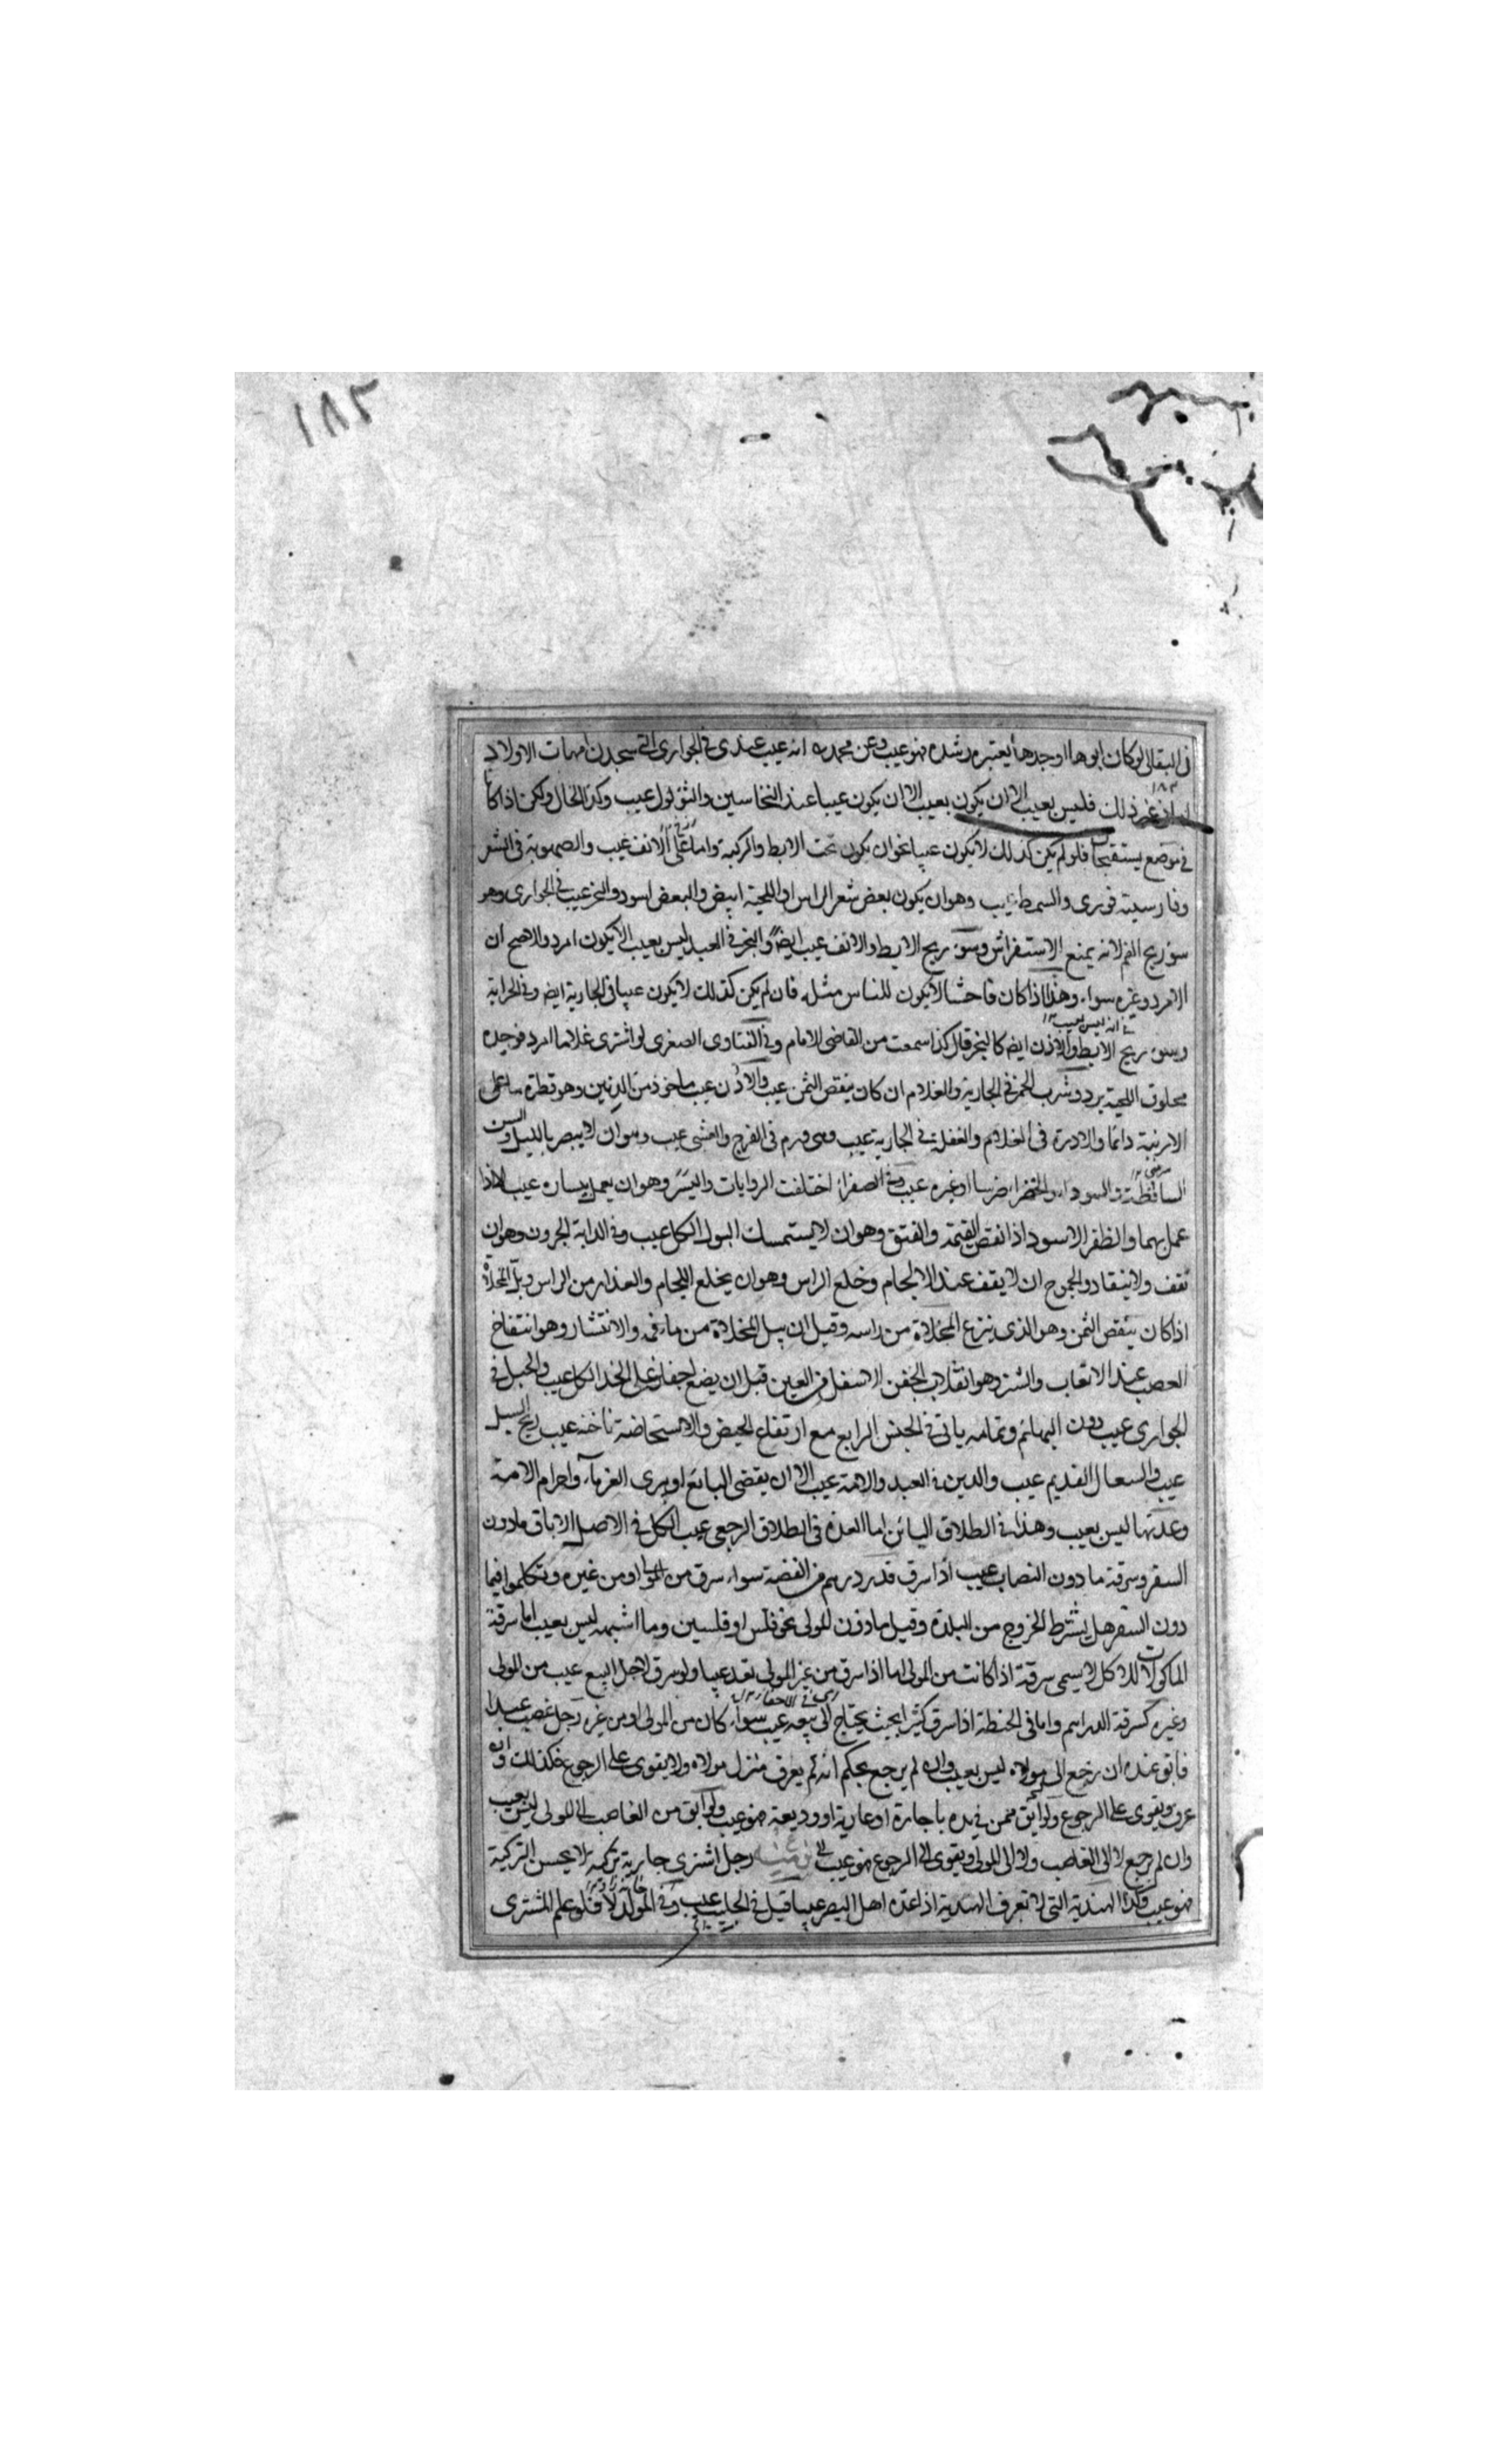 ١٨٢
فى البقالى لو كان ابوها او جدها يعتبر رشده فهو عيب وعن محمد انه عيب عندى فى الجوارى التى يتخذن امهات الاولاد
١٨٢
غير ذلك فليس بعيب الا ان يكون بعيب الا ان يكون عيبا عند النخاسين والثؤلول عيب وكذا الخال ولكن اذا كانا
فى موضع يستقبحان فلو لم يكن كذلك لا يكون عيبا نحو ان يكون تحت الابط والركبة واما على الانف عيب والصهوبة فى الشعر
وفارسيته والسمط عيب وهو ان يكون بعض شعر الراس او اللحية ابيض والبعض اسود والبخر عيب فى الجوارى وهو
سوء ريح الفم لانه يمنع الاستفراش وسوء ريح الابط والانف عيب ايضا والبخر فى العبد ليس بعيب الا يكون امرد والاصح ان
الامرد وغيره سواء وهذا اذا كان فاحشا لا يكون للناس مثله فان لم يكن كذلك لا يكون عيبا فى الجارية ايضا وفى الخزانة
انه ليس بعيب
وسوء ريح الابط والاذن ايضا كالبخر قال كذا سمعت من القاضى الامام وفى الفتاوى الصغرى لو اشترى غلاما امرد فوجده
محلوق اللحية يرد وشرب الخمر فى الجارية والغلام ان كان ينقص الثمن عيب والاذن عيب ماخوذ من الذنين وهو قطرة ما على
الارنبة دائما والادرة فى الغلام والعفلة فى الجارية عيب وهى ورم فى الفرج والعشى عيب وهو ان لا يبصر بالليل والسن
الساقطة والسوداء والخضراء ضرسا او غيره عيب وفى الصفراء اختلفت الروايات واليسر وهو ان يعمل بيساره عيب الا اذا
عمل بهما والظفر الاسود اذا نقص القيمة والفتق وهو ان لا يستمسك البول الكل عيب وفى الدابة الحرون وهو ان
تقف ولا ينقاد والجموح ان لا يقف عند الالجام وخلع الراس وهو ان يخلع اللجام والعذار من الراس وبل المخلاة
اذا كان ينقص الثمن وهو الذى ينزع المخلاة من راسه وقيل ان يبل المخلاة من ماء فمه والانتشار وهو انتفاخ
العصب عند الاتعاب والشتر وهو انقلاب الجفن الاسفل من العين قبل ان يضع اجفان على الخد الكل عيب والحبل فى
الجوارى عيب دون البهائم وتمامه ياتى فى الجنس الرابع مع ارتفاع الحيض والاستحاضة ناخنه عيب ريح السبل
عيب والسعال القديم عيب والدين فى العبد والامة عيب الا ان يقضى البائع او يبرى الغرماء واحرام الامة
وعدتها ليس بعيب وهذا فى الطلاق البائن اما العدة فى الطلاق الرجعى عيب الكل فى الاصل الاباق ما دون
السفر وسرقة ما دون النصاب عيب اذا سرق قدر درهم من الفضة سواء سرق من المولى او من غيره وتكلموا فيما
دون السفر هل يشترط الخروج من البلدة وقيل مادون للمولى نحو فلس او فلسين وما اشبهه ليس بعيب اما سرقة
الماكولات للاكل لا يسمى سرقة اذا كانت من المولى اما اذا سرق من غير المولى تعد عيبا ولو سرق لاجل البيع عيب من المولى
وغيره كسرقة الدراهم واما فى الحنطة اذا سرق كثيرا بحيث يحتاج الى بيعه عيب سواء كان من المولى او من غيره رجل غصب عبدا
فابق عنده ان رجع الى مولاه ليس بعيب وان لم يرجع بحكم انه لم يعرف منزل مولاه ولا يقوى على الرجوع فكذلك وان
عرف ويقوى على الرجوع ولو ابق ممن فى يده باجارة او عارية او وديعة فهو عيب ولو ابق من الغاصب الى المولى ليس بعيب
وان لم يرجع لا الى الغاصب ولا الى المولى ويقوى الى الرجوع فهو عيب رجل اشترى جارية تركية لا يحسن التركية
فهو عيب وكذا الهندية التى لا تعرف الهندية اذا عده اهل البصر عيبا قيل فى الجليب عيب وفى المولد لا فلو علم المشترى